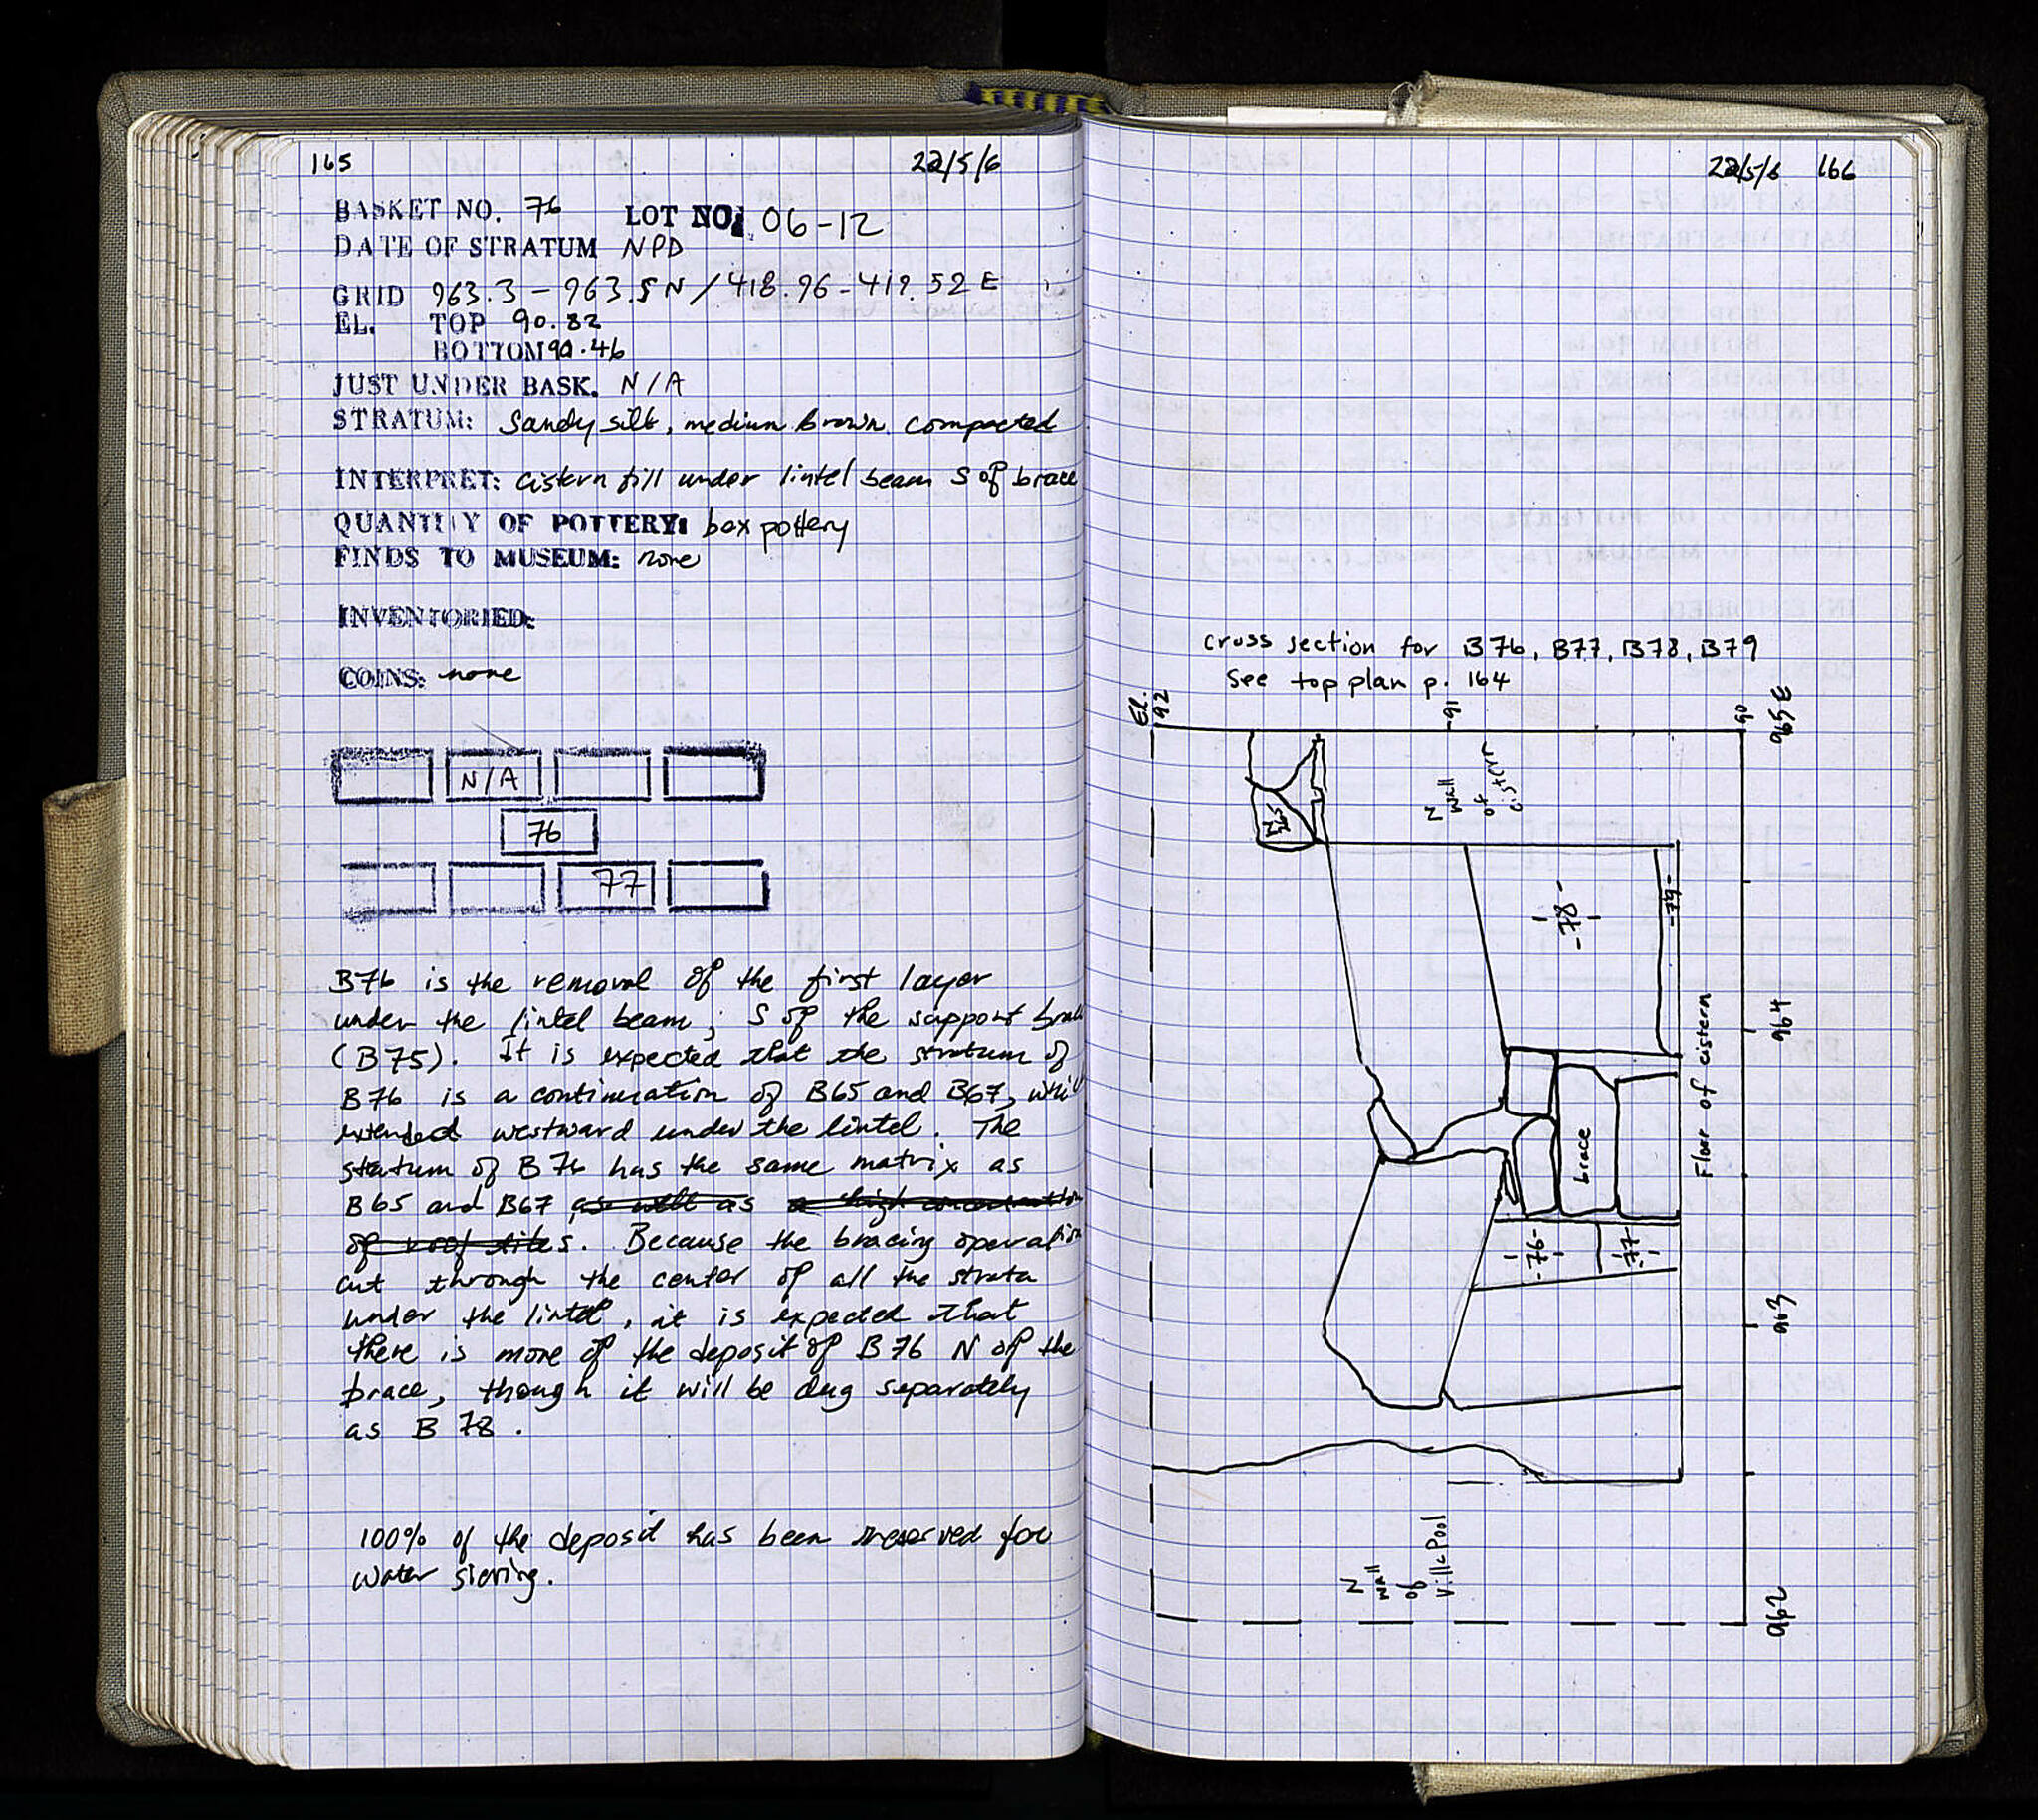 165 22/5/6
BASKET NO. 76 LOT NO: 06-12
DATE OF STRATUM NPD
GRID 963.3 - 963.5 N / 418.96 - 419.52 E
EL. TOP 90.82
BOTTOM 90.46
JUST UNDER BASK. N/A
STRATUM: Sandy silt, medium brown. compacted
INTERPRET: cistern fill under lintel beam S of brace
QUANTITY OF POTTERY: box pottery
FINDS TO MUSEUM: none
INVENTORIED:
COINS: none
N/A
76
77
B76 is the removal of the first layer
under the lintel beam; S of the support
(B75). It is expected that the stratum of
B76 is a continuation of B65 and B67, whi
extended westward under the lintel. The
stratum of B76 has the same matrix as
B65 and B67 as well as a high concentration
of roof tiles. Because the bracing operation
cut through the center of all the strata
under the lintel, it is expected that
there is more of the deposit of B76 N of the
brace, though it will be dug separately
as B 78.
100% of the deposit has been reserved for
water sieving.
22/5/6 166
cross section for B76, B77, B78, B79
See top plan p. 164
El.
92
91
90
965 E
N
wall
of
cistern
-78-
-79-
964
Floor of cistern
brace
-76-
-77-
963
N
wall
of
Ville Pool
962